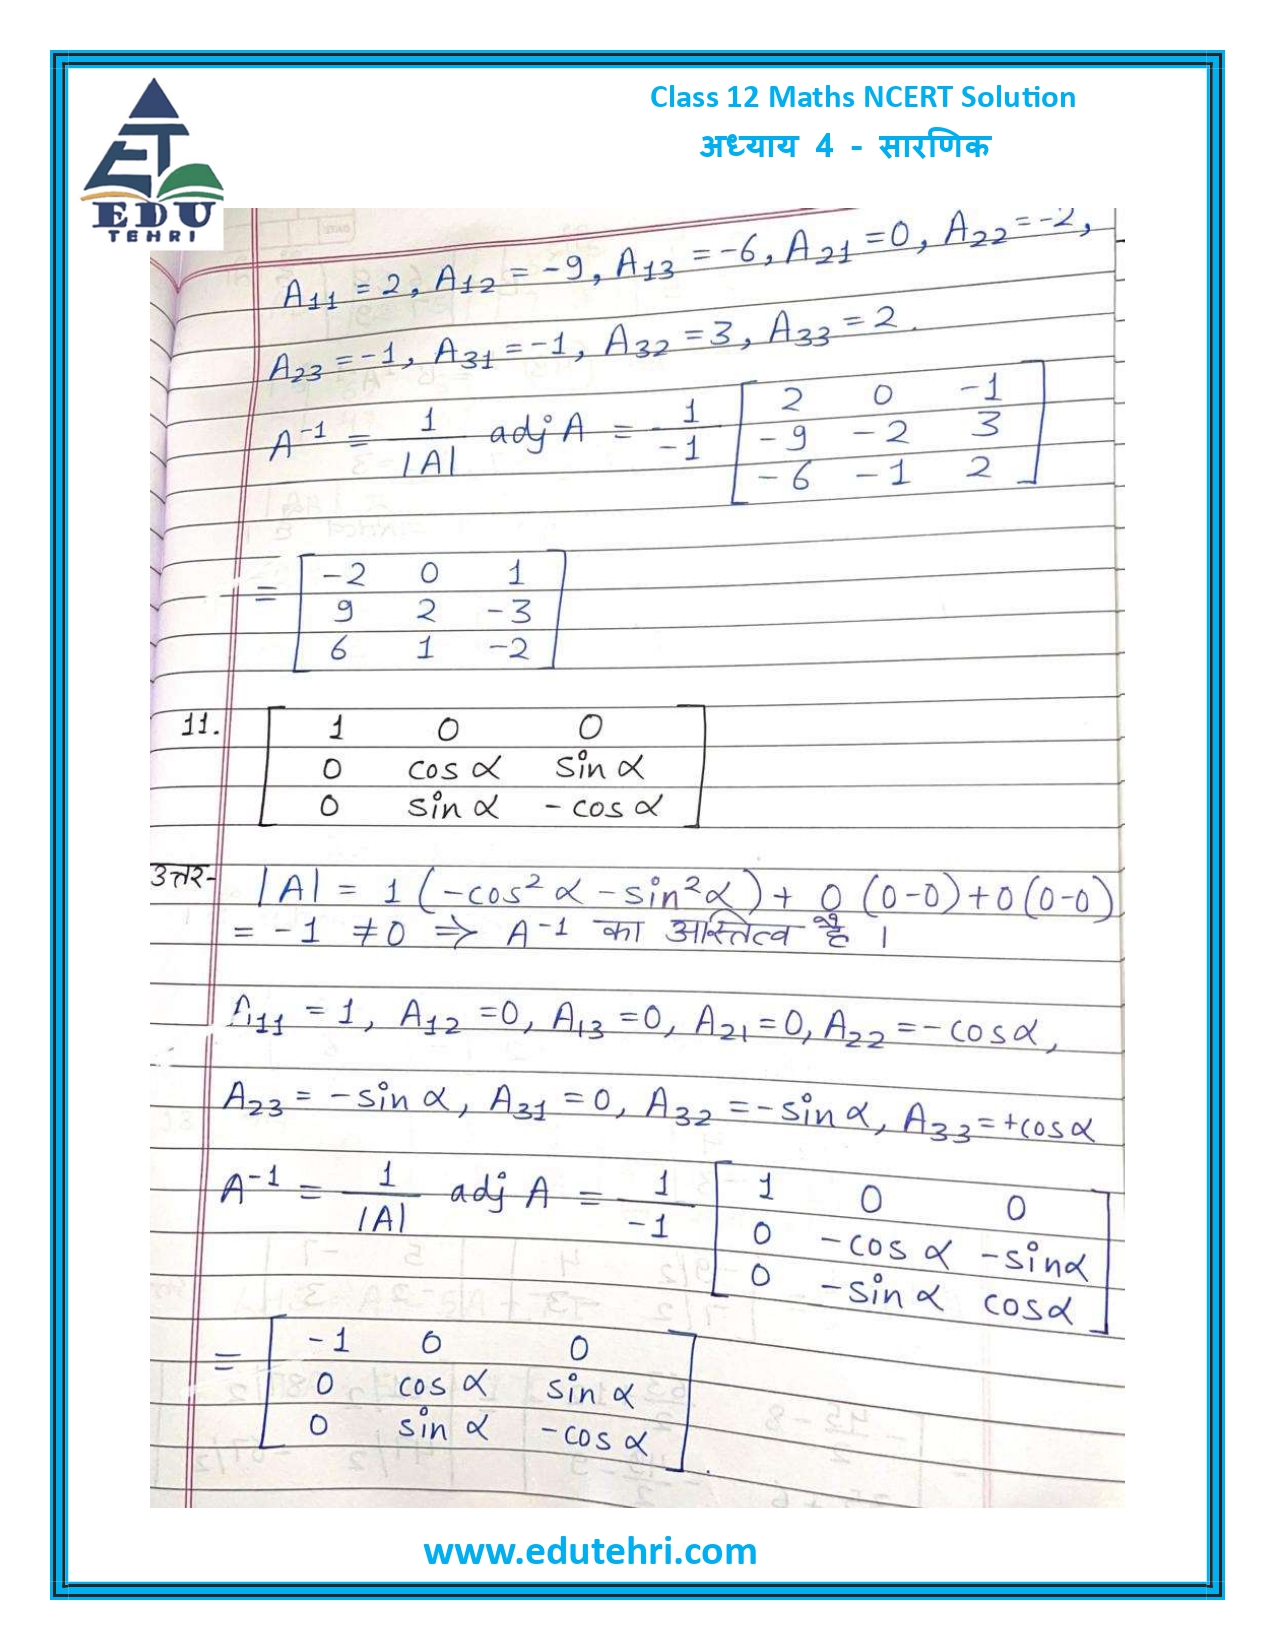 Class 12 Maths NCERT Solution
अध्याय 4 - सारणिक
EDU
TEHRI
A11 = 2, A12 = -9, A13 = -6, A21 = 0, A22 = -2,
A23 = -1, A31 = -1, A32 = 3, A33 = 2.
A-1 = 1/|A| adj A = 1/-1 [2 0 -1
-9 -2 3
-6 -1 2]
= [-2 0 1
9 2 -3
6 1 -2]
11. [1 0 0
0 cos α sin α
0 sin α - cos α]
उत्तर- |A| = 1 (-cos² α - sin² α) + 0 (0-0) + 0 (0-0)
= -1 ≠ 0 => A-1 का अस्तित्व है ।
A11 = 1, A12 = 0, A13 = 0, A21 = 0, A22 = - cos α,
A23 = - sin α, A31 = 0, A32 = - sin α, A33 = + cos α
A-1 = 1/|A| adj A = 1/-1 [1 0 0
0 - cos α - sin α
0 - sin α cos α]
= [-1 0 0
0 cos α sin α
0 sin α - cos α].
www.edutehri.com